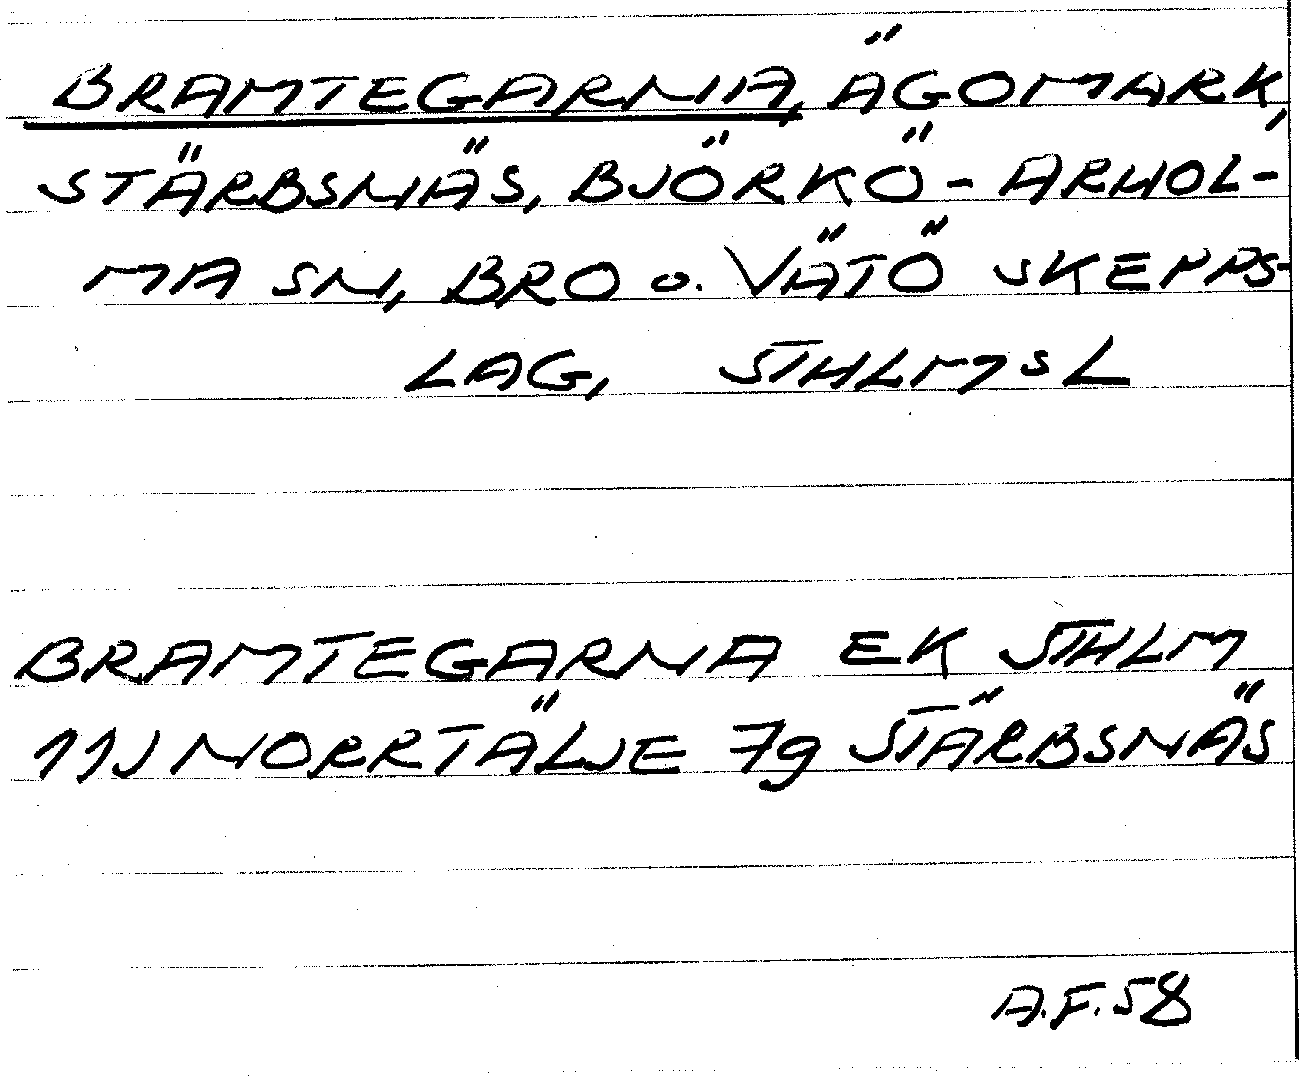 BRAMTEGARNA, ÄGOMARK,
STÄRBSNÄS, BJÖRKÖ-ARHOL-
MA SN, BRO o. VÄTÖ SKEPPS-
LAG, STHLMS L
BRAMTEGARNA EK STHLM
11J NORRTÄLJE 7g STÄRBSNÄS
A.F. 58